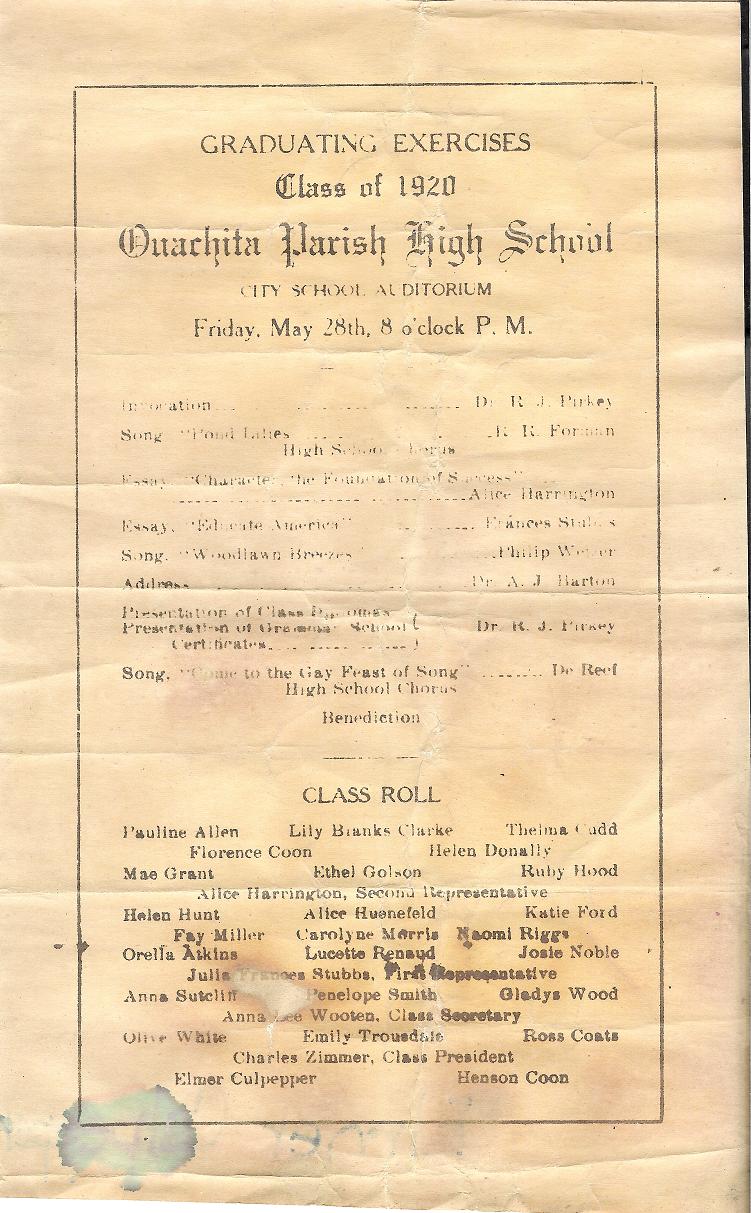 GRADUATING EXERCISES
Class of 1920
Ouachita Parish High School
CITY SCHOOL AUDITORIUM
Friday, May 28th, 8 o'clock P. M.
Invocation Dr. R. J. Pirkey
Song "Pond Lilies R. R. Forman
High School Chorus
Essay, "Character, the Foundation of Success"
Alice Harrington
Essay, "Educate America" Frances Stubbs
Song, "Woodlawn Breezes" Philip
Address Dr. A. J. Barton
Presentation of Class Diplomas
Presentation of Grammar School Dr. R. J. Pirkey
Certificates
Song, "Come to the Gay Feast of Song" De Reef
High School Chorus
Benediction
CLASS ROLL
Pauline Allen Lily Bianks Clarke Thelma Cudd
Florence Coon Helen Donally
Mae Grant Ethel Golson Ruby Hood
Alice Harrington, Second Representative
Helen Hunt Alice Huenefeld Katie Ford
Fay Miller Carolyne Morris Naomi Riggs
Orella Atkins Lucette Renaud Josie Noble
Julia Frances Stubbs, First Representative
Anna Sutcliff Penelope Smith Gladys Wood
Anna Lee Wooten, Class Secretary
Olive White Emily Trousdale Ross Coats
Charles Zimmer, Class President
Elmer Culpepper Henson Coon